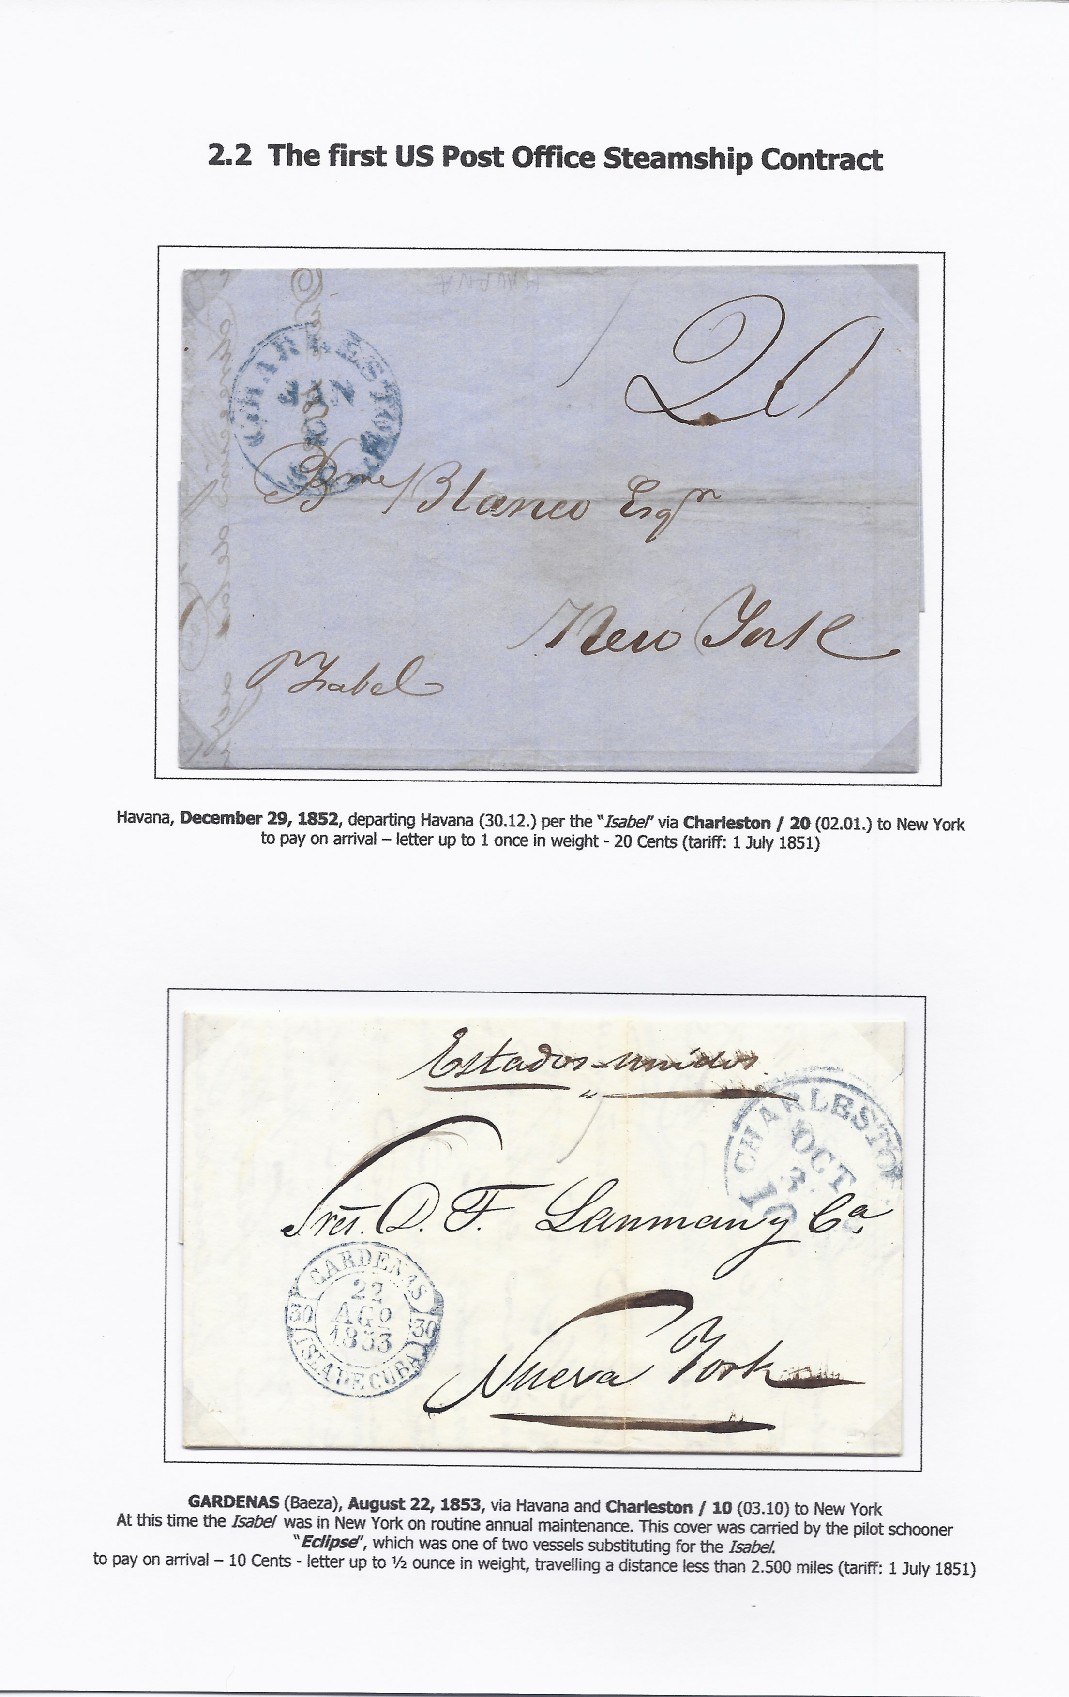 2.2 The first US Post Office Steamship Contract
HAVANA
20
CHARLESTON
JAN
Blanco Esqr
New York
Isabel
Havana, December 29, 1852, departing Havana (30.12.) per the "Isabel" via Charleston / 20 (02.01.) to New York
to pay on arrival – letter up to 1 once in weight - 20 Cents (tariff: 1 July 1851)
Estados unidos.
CHARLESTON
OCT
3
10
Sres. D. F. Lanman y Ca.
CARDENAS
22
AGO
1853
30 30
ISLA DE CUBA
Nueva York
GARDENAS (Baeza), August 22, 1853, via Havana and Charleston / 10 (03.10) to New York
At this time the Isabel was in New York on routine annual maintenance. This cover was carried by the pilot schooner
"Eclipse", which was one of two vessels substituting for the Isabel.
to pay on arrival – 10 Cents - letter up to ½ ounce in weight, travelling a distance less than 2.500 miles (tariff: 1 July 1851)